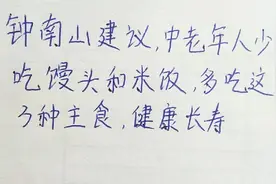 钟南山建议,中老年人少
吃馒头和米饭,多吃这
3种主食,健康长寿